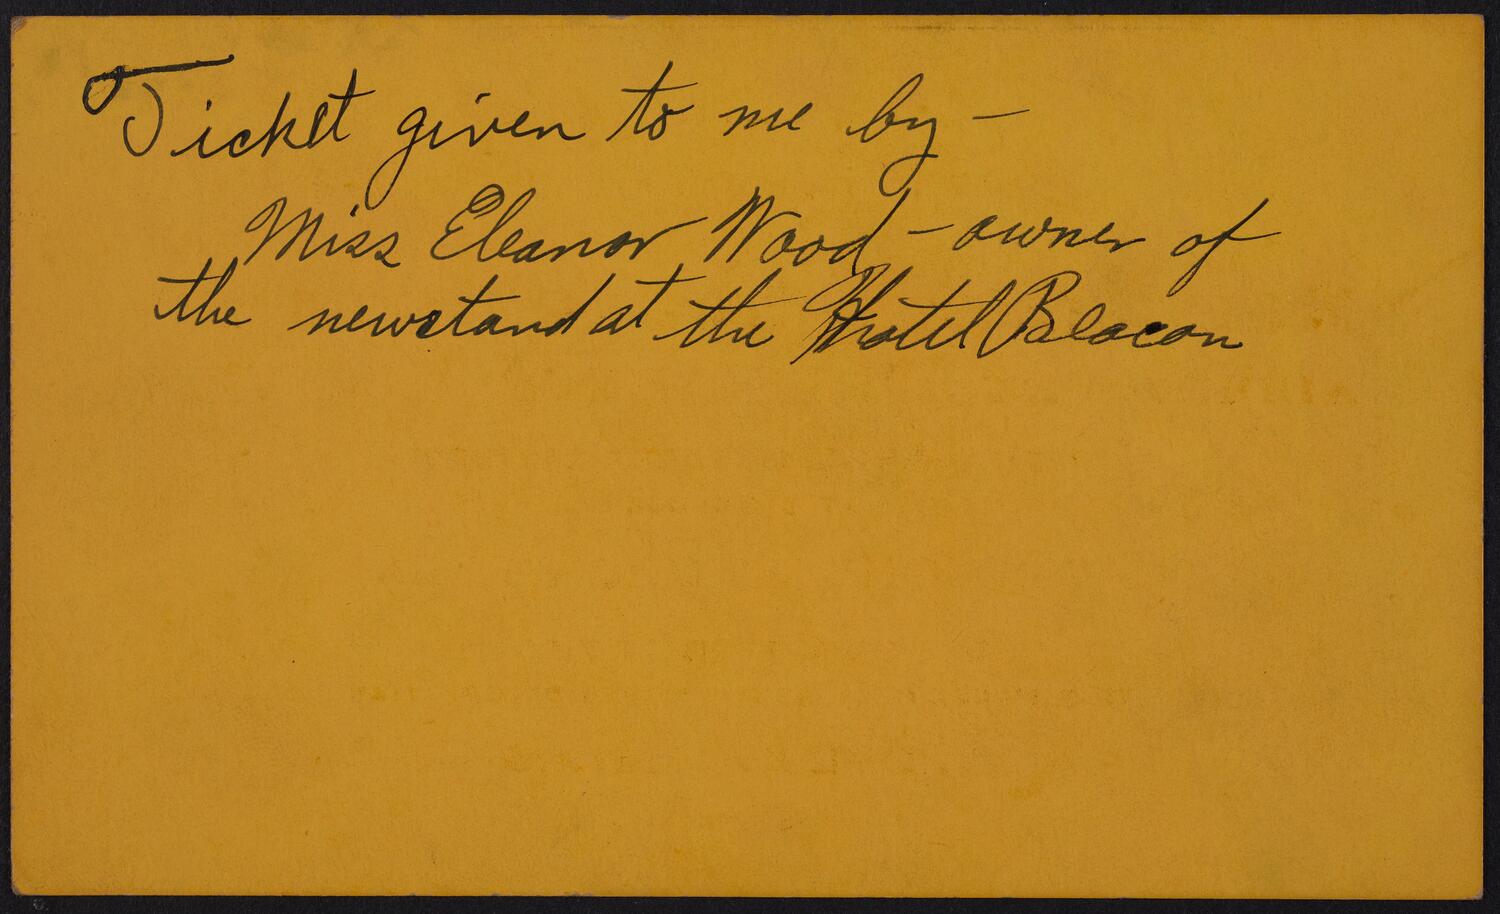 Ticket given to me by -
Miss Eleanor Wood - owner of
the newstand at the Hotel Beacon